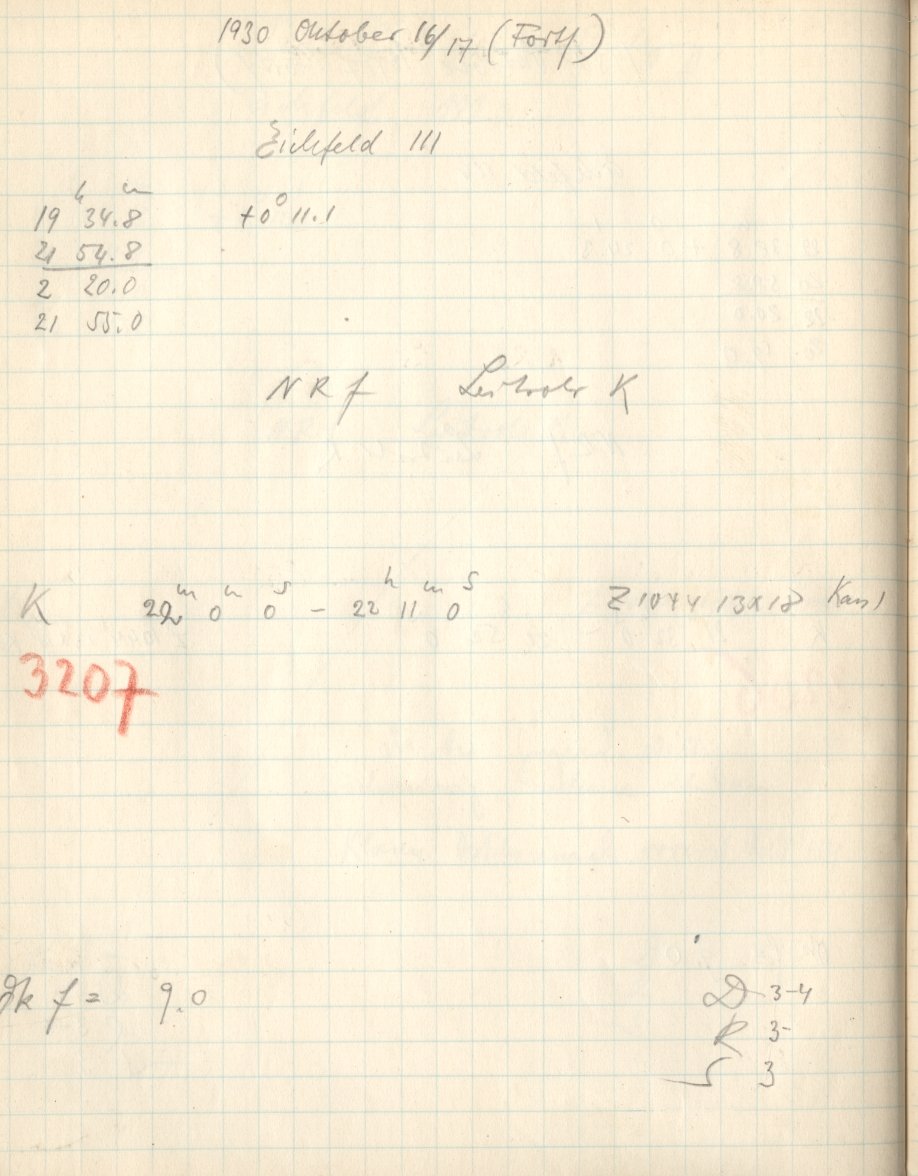 1930 Oktober 16/17 (Forts)
Eichfeld III
h m
19 34.8 +0° 11.1
21 54.8
2 20.0
21 55.0
NRf Leitrohr K
K 22 m 0 m 0 s – 22 h 11 m 0 s Z 1044 13x18 Kass)
3207
f = 9.0
D 3-4
R 3-
S 3